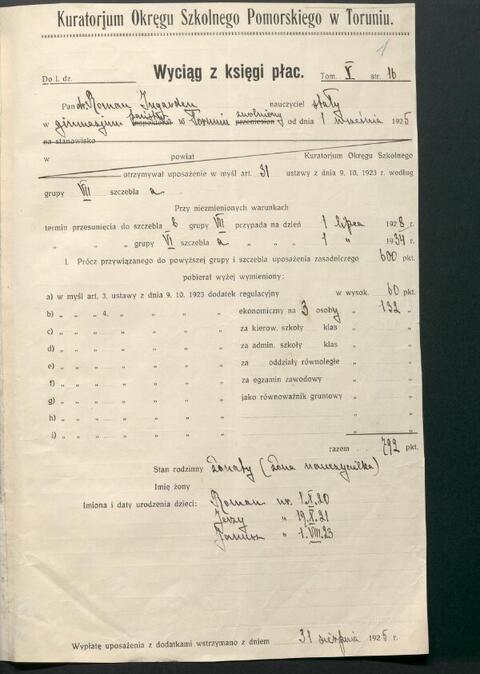 Kuratorjum Okręgu Szkolnego Pomorskiego w Toruniu.
1
Do l. dz.
Wyciąg z księgi płac.
Tom. V str. 16
Pan dr. Roman Ingarden nauczyciel stały
w gimnazjum państw. w Toruniu zwolniony od dnia 1 września 1925
na stanowisko
w powiat Kuratorjum Okręgu Szkolnego
otrzymywał uposażenie w myśl art. 31 ustawy z dnia 9. 10. 1923 r. według
grupy VII szczebla a.
Przy niezmienionych warunkach
termin przesunięcia do szczebla b grupy VII przypada na dzień 1 lipca 1928 r.
„ „ „ grupy VI szczebla a „ „ „ 1 „ 1934 r.
1. Prócz przywiązanego do powyższej grupy i szczebla uposażenia zasadniczego 600 pkt.
pobierał wyżej wymieniony:
a) w myśl art. 3. ustawy z dnia 9. 10. 1923 dodatek regulacyjny w wysok. 60 pkt.
b) „ „ „ 4. „ „ „ ekonomiczny na 3 osoby „ 132 „
c) „ „ „ „ „ „ za kierow. szkoły klas „ „
d) „ „ „ „ „ „ za admin. szkoły klas „ „
e) „ „ „ „ „ „ za oddziały równoległe „ „
f) „ „ „ „ „ „ za egzamin zawodowy „ „
g) „ „ „ „ „ „ jako równoważnik gruntowy „ „
h) „ „ „ „ „ „ „ „
i) „ „ „ „ „ „ „ „
razem 792 pkt.
Stan rodzinny żonaty (żona nauczycielka)
Imię żony
Imiona i daty urodzenia dzieci: Roman ur. 1.X.20
Jerzy „ 19.X.21
Janusz „ 1.VIII.23
Wypłatę uposażenia z dodatkami wstrzymano z dniem 31 sierpnia 1925 r.